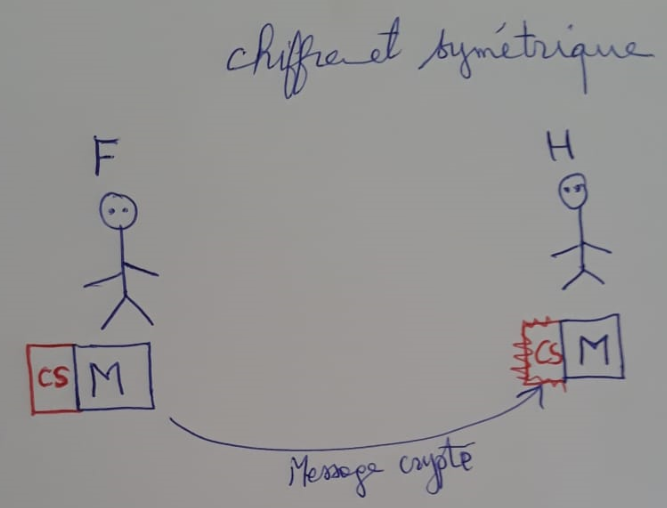 chiffremet symétrique
F
H
CS M
CS M
Message crypté